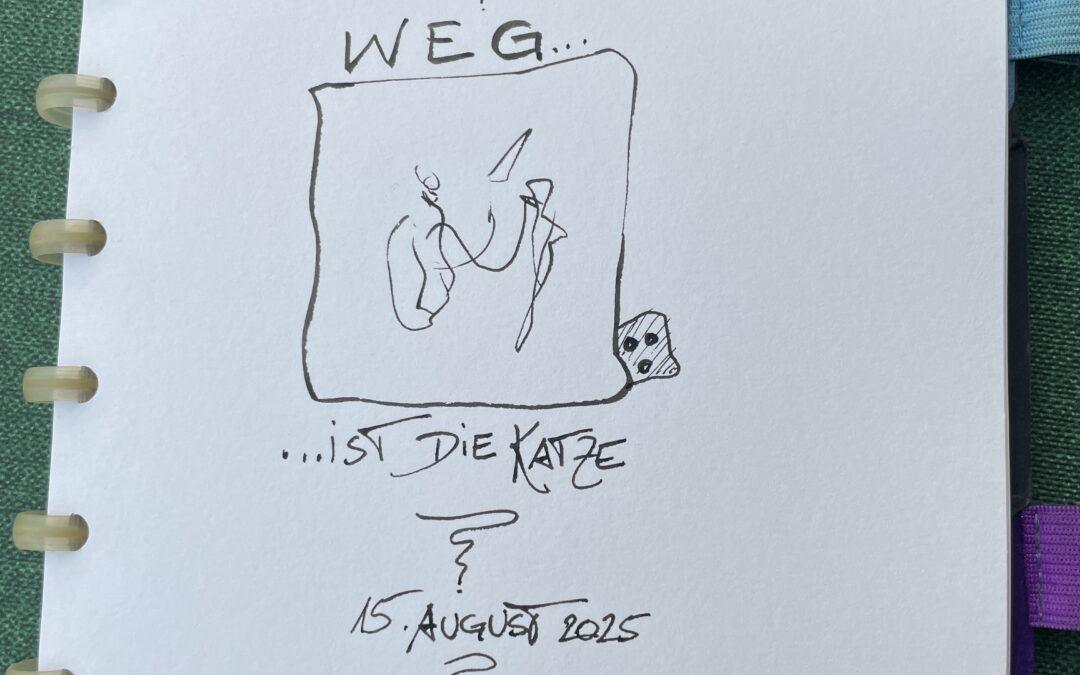 WEG...
...iST DiE KATZE
15. AUGUST 2025